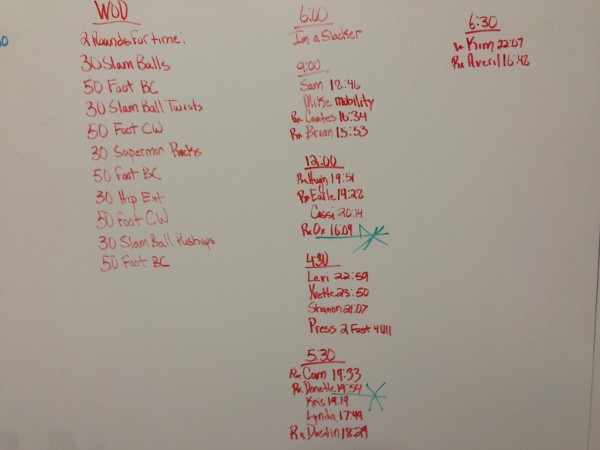 WOD
2 Rounds for time:
30 Slam Balls
50 Foot BC
30 Slam Ball Twists
50 Foot CW
30 Superman Rocks
50 Foot BC
30 Hip Ext
50 Foot CW
30 Slam Ball Pushups
50 Foot BC
6:00
I'm a Slacker
9:00
Sam 12:46
Mike mobility
Rx Coates 16:34
Rx Brian 15:53
12:00
Rx Hugh 19:51
Rx Earle 19:28
Cassi 20:14
Rx Oz 16:09
4:30
Levi 22:59
Yvette 23:50
Shanon 21:07
Press 2 Fast 4 U11
5:30
Rx Cam 19:33
Rx Donette 19:54
Kris 19:19
Lynda 17:49
Rx Dustin 18:29
6:30
Rx Kim 22:07
Rx Averil 16:42